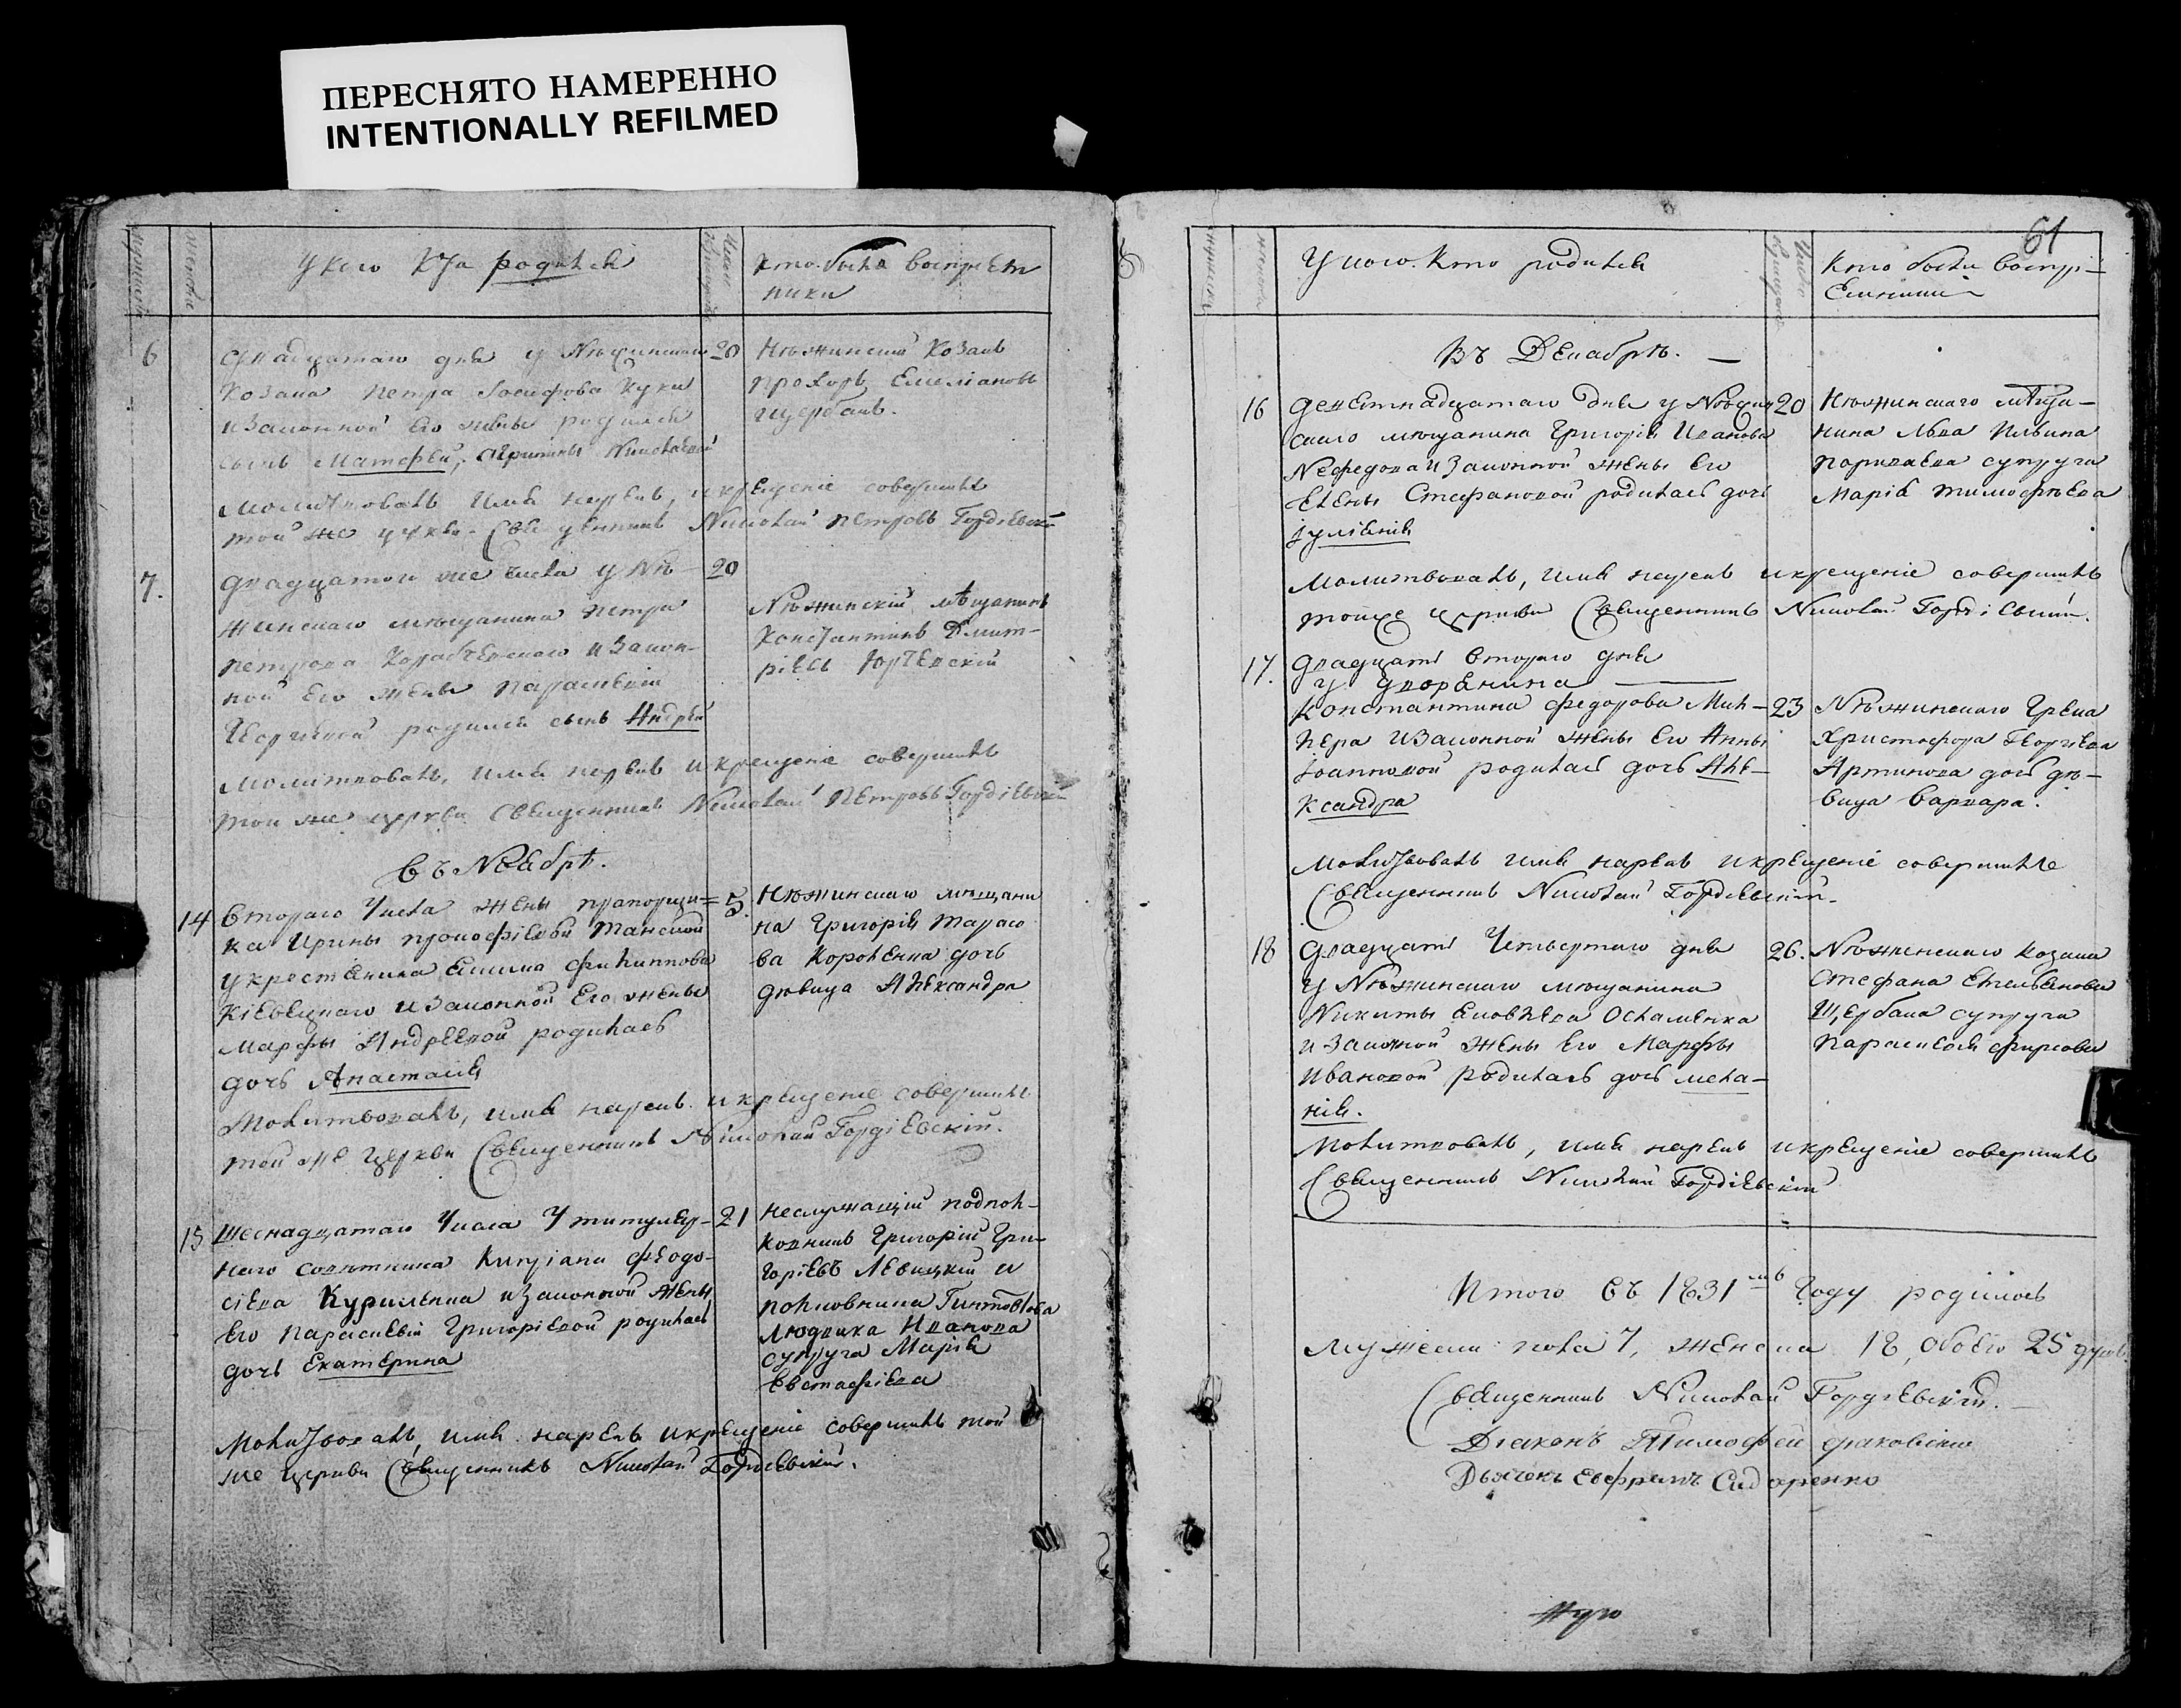 ПЕРЕСНЯТО НАМЕРЕННО
INTENTIONALLY REFILMED
У кого кто родился
Число
кто были воспріем
ники
6
дня у Нѣжинскаго 20
козака Петра Іосифова Куки
изаконной его жены родился
сынъ Матфей, Николаевой
Нѣжинскій козакъ
Прохоръ Емеліановъ
Щербакъ.
молитвовалъ имя нарекъ, и крещеніе совершилъ
той же церкви Священникъ Николай Петровъ Гордіевскій
7.
двадцатого же числа у Нѣ- 20
жинскаго мѣщанина Петра
Петрова изакон-
ной его жены Параскевіи
родился сынъ Андрей
Нѣжинскій мѣщанинъ
Константинъ Дмит-
ріевъ Юрчевскій
молитвовалъ, имя нарекъ и крещеніе совершилъ
той же церкви Священникъ Николай Петровъ Гордіевскій
Въ Ноябрѣ.
14
Втораго числа жены прапорщи= 5.
ка Ирины Прокофіевой Танской
у крестянина Екима Филиппова
Кіевецкаго изаконной его жены
Марфы Андреевой родилась
дочь Анастасія
Нѣжинскаго мѣщани
на Григорія Тарасо
ва Короленка дочь
дѣвица Александра
Молитвовалъ, имя нарекъ и крещеніе совершилъ
той же церкви Священникъ Николай Гордіевскій.
15
Шеснадцатаго числа у титуляр- 21
наго совѣтника Кипріана Феодо-
сіева Куриленка изаконной жены
его Параскевіи Григоріевой родилась
дочь Екатерина
неслужащій подпол-
ковникъ Григорій Гри-
горіевъ Левицкій и
полковника Гинтовтова
Людвика Иванова
супруга Марія
Евстафіева
Молитвовалъ, имя нарекъ и крещеніе совершилъ той
же церкви Священникъ Николай Гордіевскій.
61
У кого кто родился
Число
кто были воспрі-
емники
Въ Декабрѣ.
16
девятнадцатаго дня у Нѣжин 20
скаго мѣщанина Григорія Иванова
Нефедова изаконной жены его
Елены Стефановой родилась дочь
Іуліанія
Нѣжинскаго мѣща-
нина Льва Ильина
супруга
Марія Тимофѣева
Молитвовалъ, имя нарекъ и крещеніе совершилъ
тойже церкви Священникъ Николай Гордіевскій.
17.
двадцать втораго дня
у дворянина
Константина Федорова Мил- 23
лера изаконной жены его Анны
Іоанновой родилась дочь Але-
ксандра
Нѣжинскаго Грека
Христофора Георгіева
Артинова дочь дѣ-
вица Варвара.
Молитвовалъ имя нарекъ и крещеніе совершилъ
Священникъ Николай Гордіевскій.
18
двадцать четвертаго дня 26.
у Нѣжинскаго мѣщанина
Никиты Яковлева Осталенка
изаконной жены его Марфы
Ивановой родилась дочь Мела-
нія.
Нѣжинскаго козака
Стефана Емельянова
Щербака супруга
Параскевія Фирсова
Молитвовалъ, имя нарекъ и крещеніе совершилъ
Священникъ Николай Гордіевскій
Итого въ 1831мъ году родилось
мужеска пола 7, женска 18, обоего 25 душъ.
Священникъ Николай Гордіевскій.
Діаконъ Тимофей Раковскій
Дьячекъ Евфремъ Сидоренко